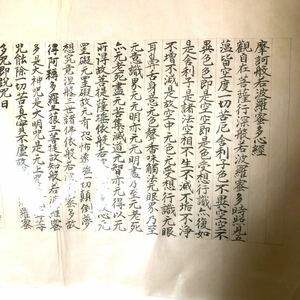 摩訶般若波羅蜜多心經
觀自在菩薩行深般若波羅蜜多時照見五
蘊皆空度一切苦厄舍利子色不異空空不
異色色即是空空即是色受想行識亦復如
是舍利子是諸法空相不生不滅不垢不淨
不增不減是故空中无色无受想行識无眼
耳鼻舌身意无色聲香味觸法无眼界乃至
无意識界无无明亦无无明盡乃至无老死
亦无老死盡无苦集滅道无智亦无得以无
所得故菩提薩埵依般若波羅蜜多故心无
罣礙无罣礙故无有恐怖遠離一切顛倒夢
想究竟涅槃三世諸佛依般若波羅蜜多故
得阿耨多羅三藐三菩提故知般若波羅蜜
多是大神咒是大明咒是无上咒是无等等
咒能除一切苦真實不虛故說般若波羅蜜
多咒即說咒曰